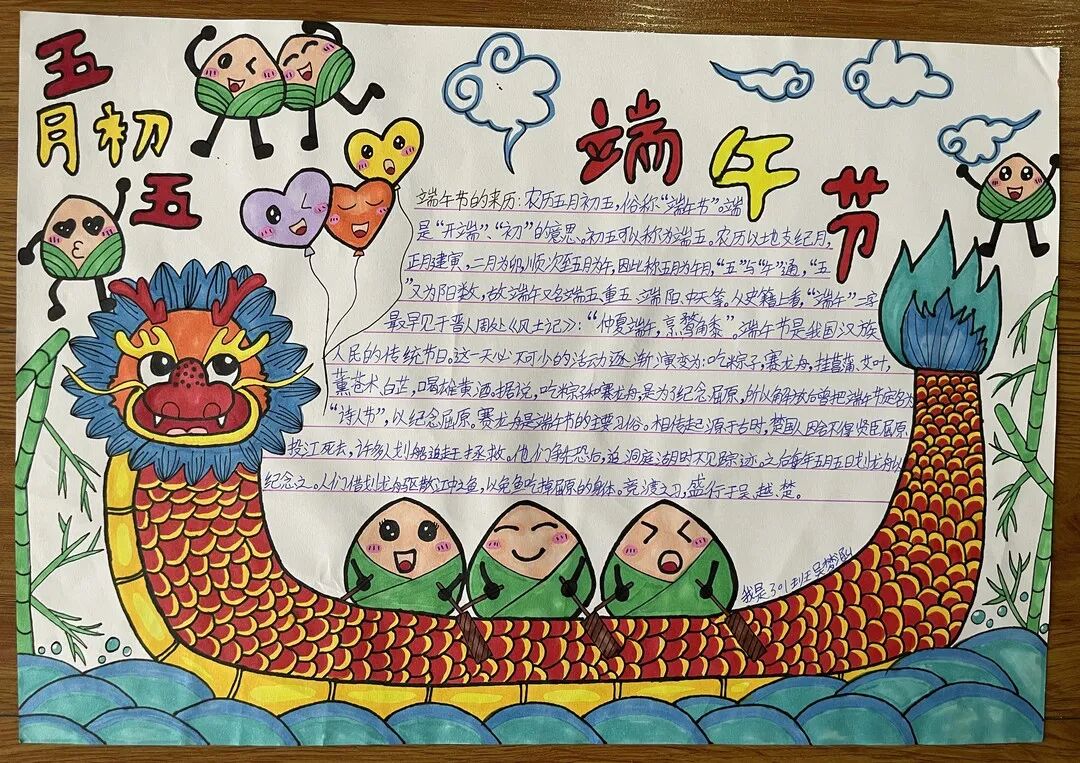 五
月初
五
端午节
端午节的来历：农历五月初五，俗称“端午节”。端
是“开端”、“初”的意思。初五可以称为端五。农历以地支纪月，
正月建寅，二月为卯，顺次至五月为午，因此称五月为午月，“五”与“午”通，“五
”又为阳数，故端午又名端五、重五、端阳、中天等。从史籍上看，“端午”二字
最早见于晋人周处《风土记》：“仲夏端午，烹鹜角黍”。端午节是我国汉族
人民的传统节日。这一天必不可少的活动逐渐演变为：吃粽子，赛龙舟，挂菖蒲、艾叶，
薰苍术、白芷，喝雄黄酒。据说，吃粽子和赛龙舟，是为了纪念屈原，所以解放后曾把端午节定名为
“诗人节”，以纪念屈原。赛龙舟是端午节的主要习俗。相传起源于古时，楚国人因舍不得贤臣屈原
投江死去，许多人划船追赶拯救。他们争先恐后，追洞庭湖时不见踪迹。之后每年五月五日划龙舟以
纪念之。人们借划龙舟驱散江中之鱼，以免鱼吃掉屈原的身体。竞渡之习，盛行于吴、越、楚。
我是301班吴梦